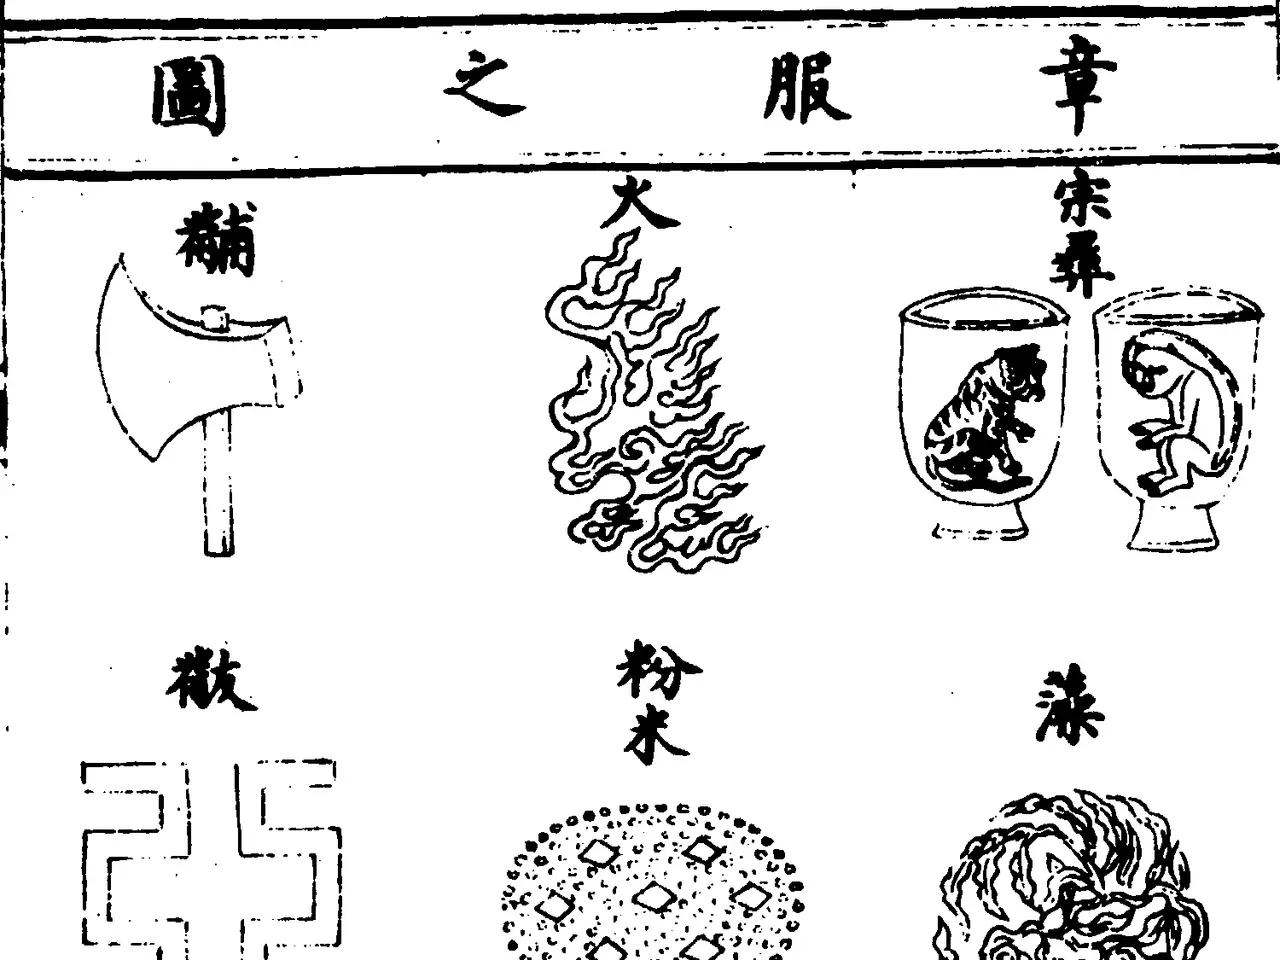 章服之圖
宗彝
藻
火
粉米
黼
黻